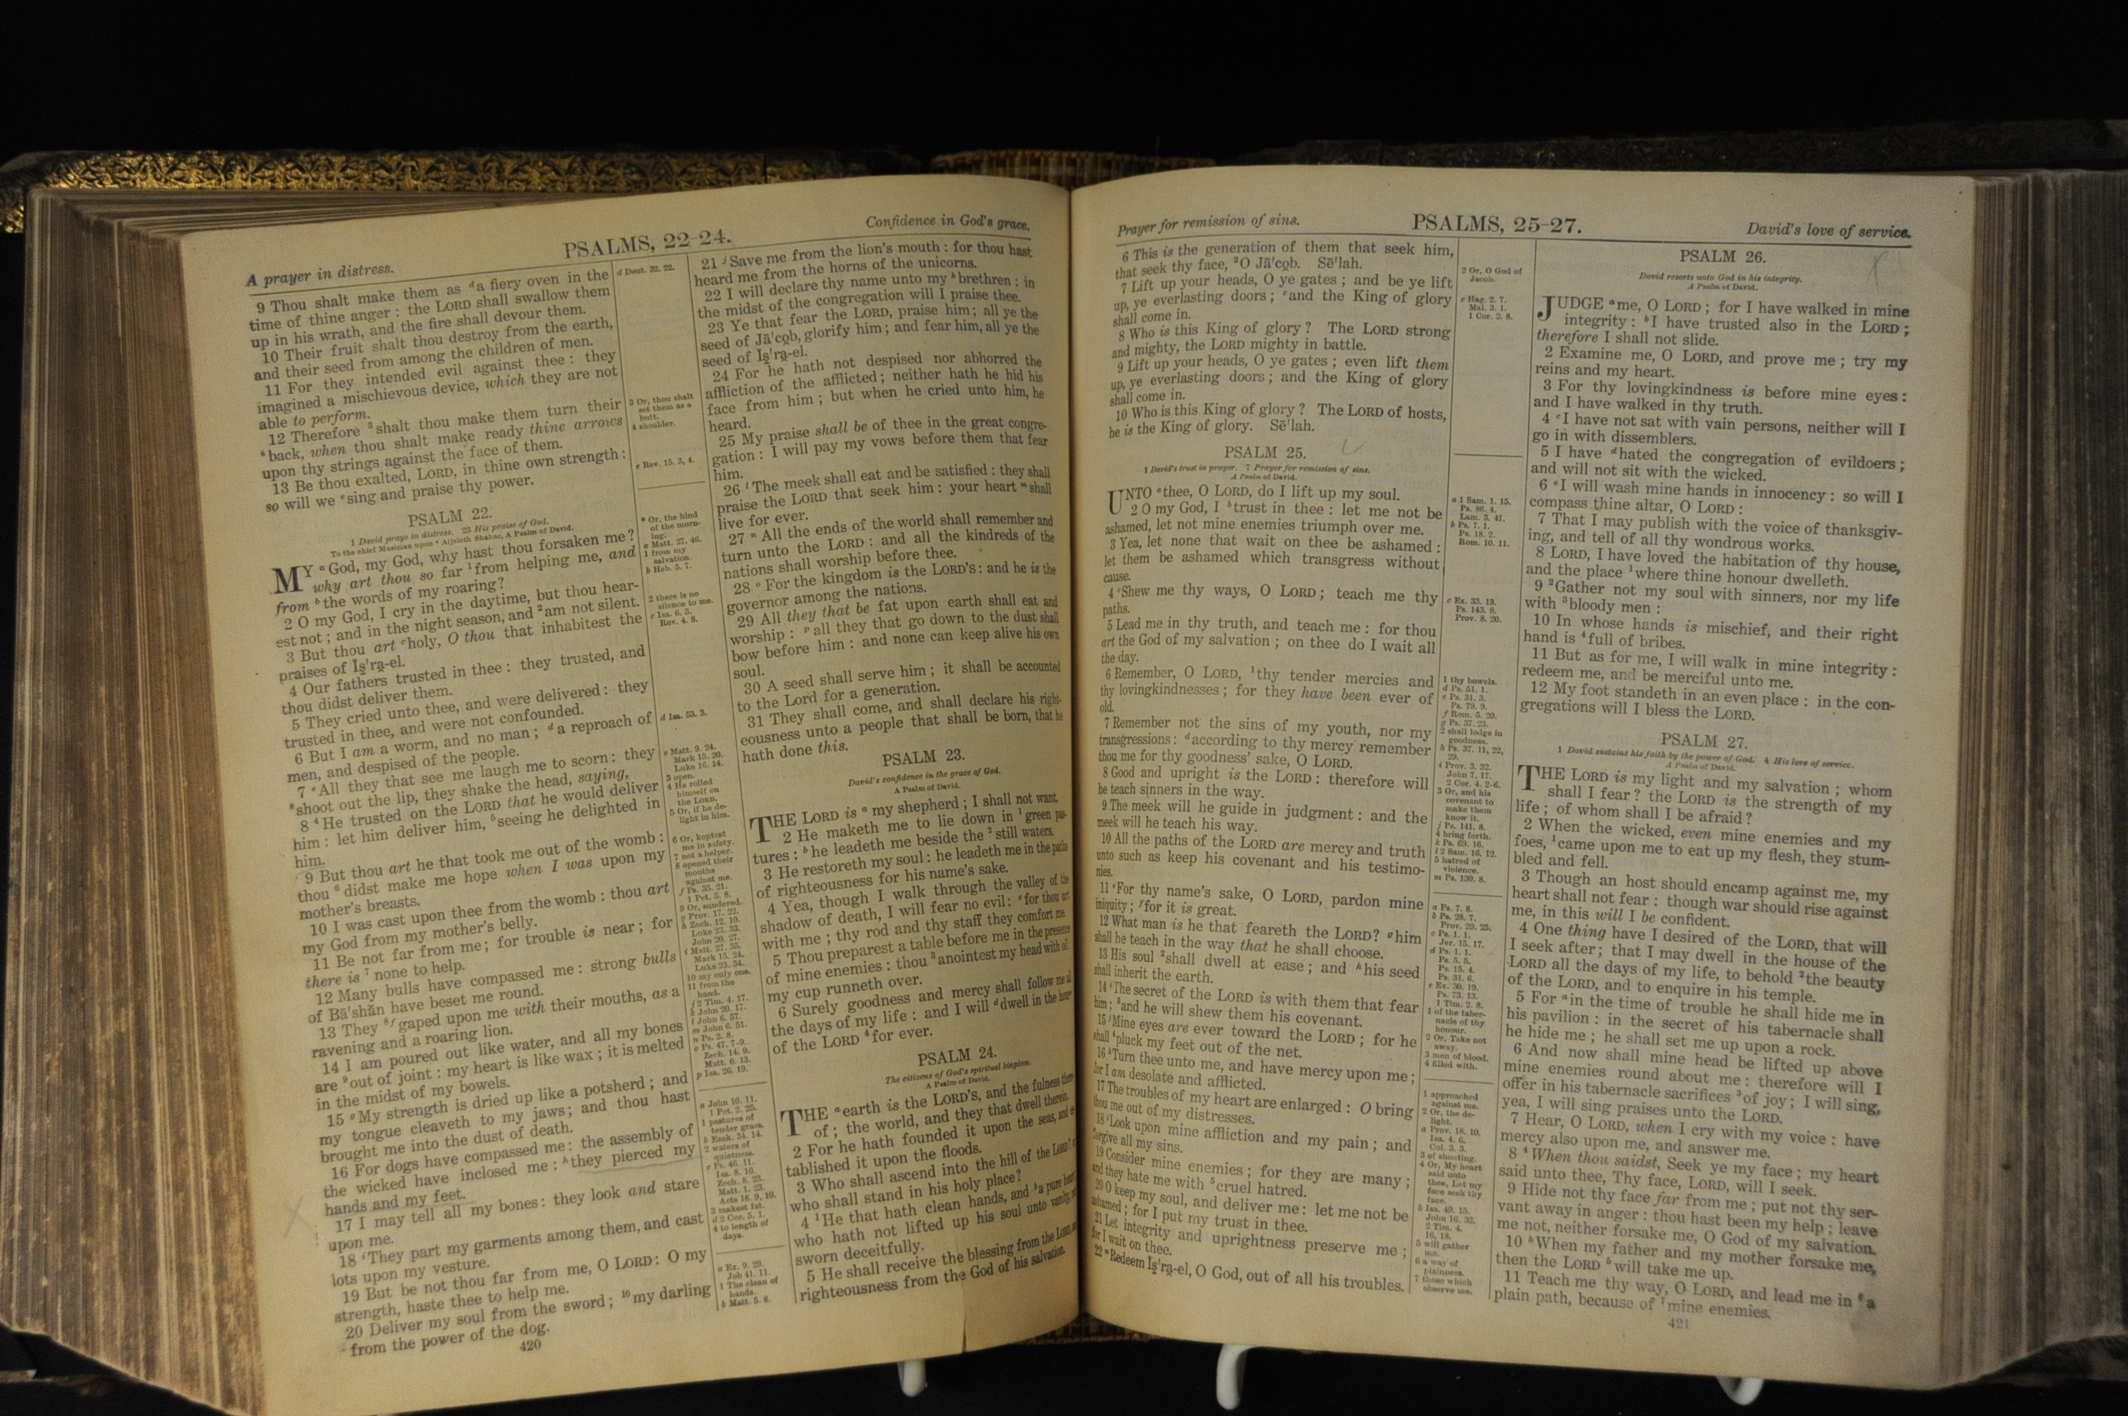 A prayer in distress.
PSALMS, 22-24.
Confidence in God's grace.
9 Thou shalt make them as d a fiery oven in the
time of thine anger : the LORD shall swallow them
up in his wrath, and the fire shall devour them.
10 Their fruit shalt thou destroy from the earth,
and their seed from among the children of men.
11 For they intended evil against thee : they
imagined a mischievous device, which they are not
able to perform.
12 Therefore 3 shalt thou make them turn their
4 back, when thou shalt make ready thine arrows
upon thy strings against the face of them.
13 Be thou exalted, LORD, in thine own strength :
so will we e sing and praise thy power.
PSALM 22.
1 David prays in distress. 23 His praise of God.
To the chief Musician upon * Aijeleth Shahar, A Psalm of David.
MY a God, my God, why hast thou forsaken me ?
why art thou so far 1 from helping me, and
from b the words of my roaring?
2 O my God, I cry in the daytime, but thou hear-
est not ; and in the night season, and 2 am not silent.
3 But thou art c holy, O thou that inhabitest the
praises of Iş'ra-el.
4 Our fathers trusted in thee : they trusted, and
thou didst deliver them.
5 They cried unto thee, and were delivered : they
trusted in thee, and were not confounded.
6 But I am a worm, and no man ; d a reproach of
men, and despised of the people.
7 e All they that see me laugh me to scorn : they
3 shoot out the lip, they shake the head, saying,
8 4 He trusted on the LORD that he would deliver
him : let him deliver him, 5 seeing he delighted in
him.
9 But thou art he that took me out of the womb :
thou 6 didst make me hope when I was upon my
mother's breasts.
10 I was cast upon thee from the womb : thou art
my God from my mother's belly.
11 Be not far from me ; for trouble is near ; for
there is 7 none to help.
12 Many bulls have compassed me : strong bulls
of Bā'shăn have beset me round.
13 They 8f gaped upon me with their mouths, as a
ravening and a roaring lion.
14 I am poured out like water, and all my bones
are 9 out of joint : my heart is like wax ; it is melted
in the midst of my bowels.
15 g My strength is dried up like a potsherd ; and
my tongue cleaveth to my jaws ; and thou hast
brought me into the dust of death.
16 For dogs have compassed me : the assembly of
the wicked have inclosed me : h they pierced my
hands and my feet.
17 I may tell all my bones : they look and stare
upon me.
18 i They part my garments among them, and cast
lots upon my vesture.
19 But be not thou far from me, O LORD : O my
strength, haste thee to help me.
20 Deliver my soul from the sword ; 10 my darling
from the power of the dog.
d Deut. 32. 22.
3 Or, thou shalt
set them as a
butt.
4 shoulder.
e Rev. 15. 3, 4.
* Or, the hind
of the morn-
ing.
a Matt. 27. 46.
1 from my
salvation.
b Heb. 5. 7.
2 there is no
silence to me.
c Isa. 6. 3.
Rev. 4. 8.
d Isa. 53. 3.
e Matt. 9. 24.
Mark 15. 20.
Luke 16. 14.
3 open.
4 He rolled
himself on
the LORD.
5 Or, if he de-
light in him.
6 Or, keptest
me in safety.
7 not a helper.
8 opened their
mouths
against me.
f Ps. 35. 21.
1 Pet. 5. 8.
9 Or, sundered.
g Prov. 17. 22.
h Zech. 12. 10.
Luke 23. 33.
John 20. 27.
i Matt. 27. 35.
Mark 15. 24.
Luke 23. 34.
10 my only one.
11 from the
hand.
j 2 Tim. 4. 17.
k John 20. 17.
l John 6. 57.
m John 6. 51.
n Ps. 2. 8.
o Ps. 47. 7-9.
Zech. 14. 9.
Matt. 6. 13.
p Isa. 26. 19.
a John 10. 11.
1 Pet. 2. 25.
1 pastures of
tender grass.
b Ezek. 34. 14.
2 waters of
quietness.
c Ps. 46. 11.
Isa. 8. 10.
Zech. 8. 23.
Matt. 1. 23.
Acts 18. 9, 10.
3 makest fat.
d 2 Cor. 5. 1.
4 to length of
days.
a Ex. 9. 29.
Job 41. 11.
1 The clean of
hands.
b Matt. 5. 8.
21 j Save me from the lion's mouth : for thou hast
heard me from the horns of the unicorns.
22 I will declare thy name unto my k brethren : in
the midst of the congregation will I praise thee.
23 Ye that fear the LORD, praise him ; all ye the
seed of Jā'cob, glorify him ; and fear him, all ye the
seed of Iş'ra-el.
24 For he hath not despised nor abhorred the
affliction of the afflicted ; neither hath he hid his
face from him ; but when he cried unto him, he
heard.
25 My praise shall be of thee in the great congre-
gation : I will pay my vows before them that fear
him.
26 l The meek shall eat and be satisfied : they shall
praise the LORD that seek him : your heart m shall
live for ever.
27 n All the ends of the world shall remember and
turn unto the LORD : and all the kindreds of the
nations shall worship before thee.
28 o For the kingdom is the LORD'S : and he is the
governor among the nations.
29 All they that be fat upon earth shall eat and
worship : p all they that go down to the dust shall
bow before him : and none can keep alive his own
soul.
30 A seed shall serve him ; it shall be accounted
to the Lord for a generation.
31 They shall come, and shall declare his right-
eousness unto a people that shall be born, that he
hath done this.
PSALM 23.
David's confidence in the grace of God.
A Psalm of David.
THE LORD is a my shepherd ; I shall not want.
2 He maketh me to lie down in 1 green pas-
tures : b he leadeth me beside the 2 still waters.
3 He restoreth my soul : he leadeth me in the paths
of righteousness for his name's sake.
4 Yea, though I walk through the valley of the
shadow of death, I will fear no evil : c for thou art
with me ; thy rod and thy staff they comfort me.
5 Thou preparest a table before me in the presence
of mine enemies : thou 3 anointest my head with oil
my cup runneth over.
6 Surely goodness and mercy shall follow me all
the days of my life : and I will d dwell in the house
of the LORD 4 for ever.
PSALM 24.
The citizens of God's spiritual kingdom.
A Psalm of David.
THE a earth is the LORD'S, and the fulness there-
of ; the world, and they that dwell therein.
2 For he hath founded it upon the seas, and
tablished it upon the floods.
3 Who shall ascend into the hill of the LORD ?
who shall stand in his holy place ?
4 1 He that hath clean hands, and b a pure heart
who hath not lifted up his soul unto vanity,
sworn deceitfully.
5 He shall receive the blessing from the LORD,
righteousness from the God of his salvation.
420
Prayer for remission of sins.
PSALMS, 25-27.
David's love of service.
6 This is the generation of them that seek him,
that seek thy face, 2 O Jā'cob. Sē'lah.
7 Lift up your heads, O ye gates ; and be ye lift
up, ye everlasting doors ; c and the King of glory
shall come in.
8 Who is this King of glory ? The LORD strong
and mighty, the LORD mighty in battle.
9 Lift up your heads, O ye gates ; even lift them
up, ye everlasting doors ; and the King of glory
shall come in.
10 Who is this King of glory ? The LORD of hosts,
he is the King of glory. Sē'lah.
PSALM 25.
1 David's trust in prayer. 7 Prayer for remission of sins.
A Psalm of David.
UNTO a thee, O LORD, do I lift up my soul.
2 O my God, I b trust in thee : let me not be
ashamed, let not mine enemies triumph over me.
3 Yea, let none that wait on thee be ashamed :
let them be ashamed which transgress without
cause.
4 c Shew me thy ways, O LORD ; teach me thy
paths.
5 Lead me in thy truth, and teach me : for thou
art the God of my salvation ; on thee do I wait all
the day.
6 Remember, O LORD, 1 thy tender mercies and
thy lovingkindnesses ; for they have been ever of
old.
7 Remember not the sins of my youth, nor my
transgressions : d according to thy mercy remember
thou me for thy goodness' sake, O LORD.
8 Good and upright is the LORD : therefore will
he teach sinners in the way.
9 The meek will he guide in judgment : and the
meek will he teach his way.
10 All the paths of the LORD are mercy and truth
unto such as keep his covenant and his testimo-
nies.
11 e For thy name's sake, O LORD, pardon mine
iniquity ; f for it is great.
12 What man is he that feareth the LORD ? g him
shall he teach in the way that he shall choose.
13 His soul 2 shall dwell at ease ; and h his seed
shall inherit the earth.
14 i The secret of the LORD is with them that fear
him ; 3 and he will shew them his covenant.
15 j Mine eyes are ever toward the LORD ; for he
shall 4 pluck my feet out of the net.
16 k Turn thee unto me, and have mercy upon me ;
for I am desolate and afflicted.
17 The troubles of my heart are enlarged : O bring
thou me out of my distresses.
18 l Look upon mine affliction and my pain ; and
forgive all my sins.
19 Consider mine enemies ; for they are many ;
and they hate me with 5 cruel hatred.
20 O keep my soul, and deliver me : let me not be
ashamed ; for I put my trust in thee.
21 Let integrity and uprightness preserve me ;
for I wait on thee.
22 m Redeem Iş'ra-el, O God, out of all his troubles.
2 Or, O God of
Jacob.
c Hag. 2. 7.
Mal. 3. 1.
1 Cor. 2. 8.
a 1 Sam. 1. 15.
Ps. 86. 4.
Lam. 3. 41.
b Ps. 7. 1.
Ps. 18. 2.
Rom. 10. 11.
c Ex. 33. 13.
Ps. 143. 8.
Prov. 8. 20.
1 thy bowels.
d Ps. 51. 1.
e Ps. 31. 3.
Ps. 79. 9.
f Rom. 5. 20.
g Ps. 37. 23.
2 shall lodge in
goodness.
h Ps. 37. 11, 22,
29.
i Prov. 3. 32.
John 7. 17.
2 Cor. 4. 2-6.
3 Or, and his
covenant to
make them
know it.
j Ps. 141. 8.
4 bring forth.
k Ps. 69. 16.
l 2 Sam. 16. 12.
5 hatred of
violence.
m Ps. 130. 8.
a Ps. 7. 8.
b Ps. 28. 7.
Prov. 29. 25.
c Ps. 1. 1.
Jer. 15. 17.
d Ps. 1. 1.
Ps. 5. 5.
Ps. 15. 4.
Ps. 31. 6.
e Ex. 30. 19.
Ps. 73. 13.
1 Tim. 2. 8.
1 of the taber-
nacle of thy
honour.
2 Or, Take not
away.
3 men of blood.
4 filled with.
1 approached
against me.
2 Or, the de-
light.
a Prov. 18. 10.
Isa. 4. 6.
Col. 3. 3.
3 of shouting.
4 Or, My heart
said unto
thee, Let my
face seek thy
face.
b Isa. 49. 15.
John 16. 32.
2 Tim. 4.
16, 18.
5 will gather
me.
6 a way of
plainness.
7 those which
observe me.
PSALM 26.
David resorts unto God in his integrity.
A Psalm of David.
JUDGE a me, O LORD ; for I have walked in mine
integrity : b I have trusted also in the LORD ;
therefore I shall not slide.
2 Examine me, O LORD, and prove me ; try my
reins and my heart.
3 For thy lovingkindness is before mine eyes :
and I have walked in thy truth.
4 c I have not sat with vain persons, neither will I
go in with dissemblers.
5 I have d hated the congregation of evildoers ;
and will not sit with the wicked.
6 e I will wash mine hands in innocency : so will I
compass thine altar, O LORD :
7 That I may publish with the voice of thanksgiv-
ing, and tell of all thy wondrous works.
8 LORD, I have loved the habitation of thy house,
and the place 1 where thine honour dwelleth.
9 2 Gather not my soul with sinners, nor my life
with 3 bloody men :
10 In whose hands is mischief, and their right
hand is 4 full of bribes.
11 But as for me, I will walk in mine integrity :
redeem me, and be merciful unto me.
12 My foot standeth in an even place : in the con-
gregations will I bless the LORD.
PSALM 27.
1 David sustains his faith by the power of God. 4 His love of service.
A Psalm of David.
THE LORD is my light and my salvation ; whom
shall I fear ? the LORD is the strength of my
life ; of whom shall I be afraid ?
2 When the wicked, even mine enemies and my
foes, 1 came upon me to eat up my flesh, they stum-
bled and fell.
3 Though an host should encamp against me, my
heart shall not fear : though war should rise against
me, in this will I be confident.
4 One thing have I desired of the LORD, that will
I seek after ; that I may dwell in the house of the
LORD all the days of my life, to behold 2 the beauty
of the LORD, and to enquire in his temple.
5 For a in the time of trouble he shall hide me in
his pavilion : in the secret of his tabernacle shall
he hide me ; he shall set me up upon a rock.
6 And now shall mine head be lifted up above
mine enemies round about me : therefore will I
offer in his tabernacle sacrifices 3 of joy ; I will sing,
yea, I will sing praises unto the LORD.
7 Hear, O LORD, when I cry with my voice : have
mercy also upon me, and answer me.
8 4 When thou saidst, Seek ye my face ; my heart
said unto thee, Thy face, LORD, will I seek.
9 Hide not thy face far from me ; put not thy ser-
vant away in anger : thou hast been my help ; leave
me not, neither forsake me, O God of my salvation.
10 b When my father and my mother forsake me,
then the LORD 5 will take me up.
11 Teach me thy way, O LORD, and lead me in 6 a
plain path, because of 7 mine enemies.
421